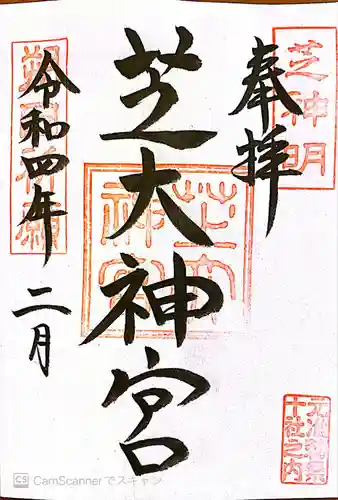 奉拝
芝神明
芝大神宮
芝大
神宮
令和四年
二月
元准勅祭
十社之内
CS CamScannerでスキャン